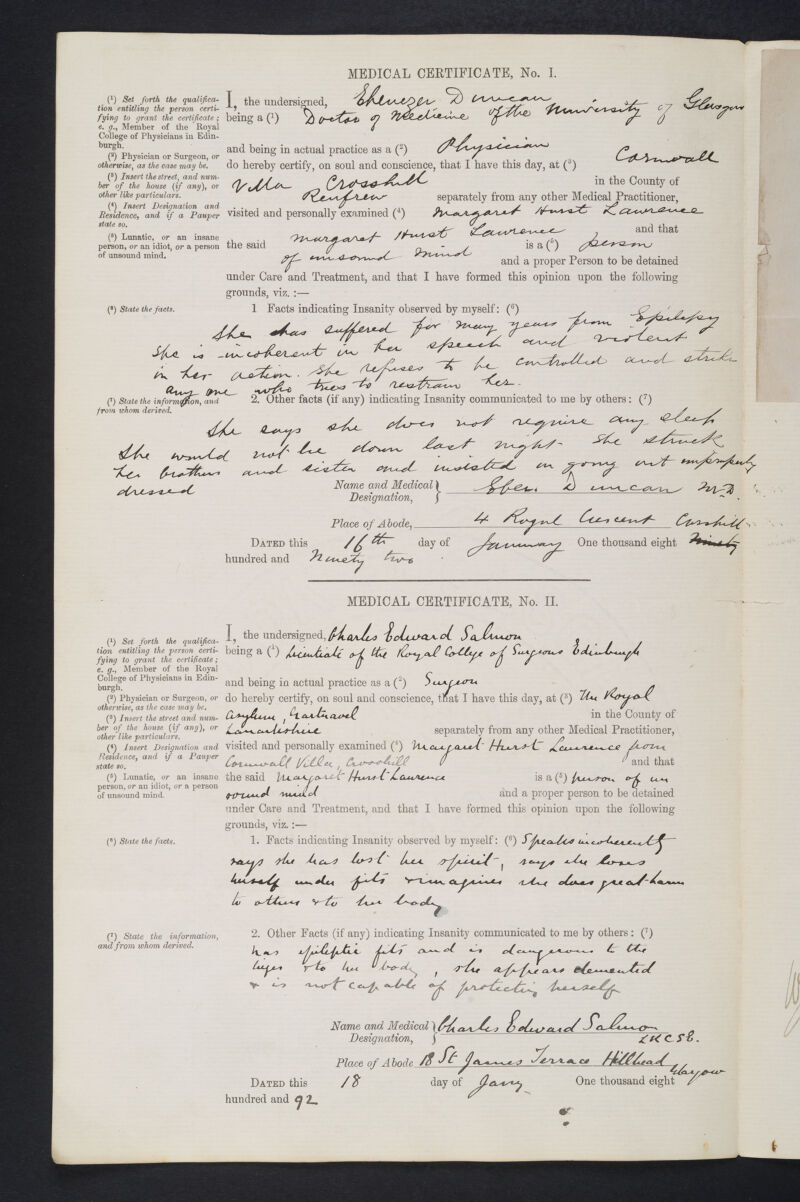 MEDICAL CERTIFICATE, No. I.
(1) Set forth the qualifica-
tion entitling the person certi-
fying to grant the certificate;
e. g., Member of the Royal
College of Physicians in Edin-
burgh.
(2) Physician or Surgeon, or
otherwise, as the case may be.
(3) Insert the street, and num-
ber of the house (if any), or
other like particulars.
(4) Insert Designation and
Residence, and if a Pauper
state so.
(5) Lunatic, or an insane
person, or an idiot, or a person
of unsound mind.
I, the undersigned, Ebenezer Duncan
being a (1) Doctor of Medicine of the University of Glasgow
and being in actual practice as a (2) Physician
do hereby certify, on soul and conscience, that I have this day, at (3) Cornwall
Villa Crosshill in the County of
Renfrew separately from any other Medical Practitioner,
visited and personally examined (4) Margaret Hurst Lawrence
and that
the said Margaret Hurst Lawrence is a (5) person
of unsound mind and a proper Person to be detained
under Care and Treatment, and that I have formed this opinion upon the following
grounds, viz. :—
(6) State the facts.
1 Facts indicating Insanity observed by myself: (6)
She has suffered for many years from Epilepsy
She is incoherent in her speech and violent
in her action. She refuses to be controlled and strikes
any one who tries to restrain her.
(7) State the information, and
from whom derived.
2. Other facts (if any) indicating Insanity communicated to me by others: (7)
She says she does not require any sleep
She would not lie down last night. She struck
her brothers and sister and insisted on going out improperly
dressed
Name and Medical Designation, Eben. Duncan M.D.
Place of Abode, 4 Royal Crescent Crosshill
DATED this 16th day of January One thousand eight Ninety
hundred and Ninety two
MEDICAL CERTIFICATE, No. II.
(1) Set forth the qualifica-
tion entitling the person certi-
fying to grant the certificate;
e. g., Member of the Royal
College of Physicians in Edin-
burgh.
(2) Physician or Surgeon, or
otherwise, as the case may be.
(3) Insert the street and num-
ber of the house (if any), or
other like particulars.
(4) Insert Designation and
Residence, and if a Pauper
state so.
(5) Lunatic, or an insane
person, or an idiot, or a person
of unsound mind.
I, the undersigned, Charles Edward Salmon
being a (1) Licentiate of the Royal College of Surgeons Edinburgh
and being in actual practice as a (2) Surgeon
do hereby certify, on soul and conscience, that I have this day, at (3) The Royal
Asylum, Gartnavel in the County of
Lanarkshire separately from any other Medical Practitioner,
visited and personally examined (4) Margaret Hurst Lawrence from
Cornwall Villa, Crosshill and that
the said Margaret Hurst Lawrence is a (5) person of un
sound mind and a proper person to be detained
under Care and Treatment, and that I have formed this opinion upon the following
grounds, viz. :—
(6) State the facts.
1. Facts indicating Insanity observed by myself: (6) Speaks incoherently
says she has lost her spirit, says she loses
herself under fits & imagines she does great harm
to others & to her body
(7) State the information,
and from whom derived.
2. Other Facts (if any) indicating Insanity communicated to me by others: (7)
has epileptic fits and is dangerous to the
lieges & to her body, she appears demented
& is not capable of protecting herself
Name and Medical Designation, Charles Edward Salmon
LRCSE.
Place of Abode 18 St James Terrace Hillhead Glasgow
DATED this 18 day of Jany One thousand eight
hundred and 92